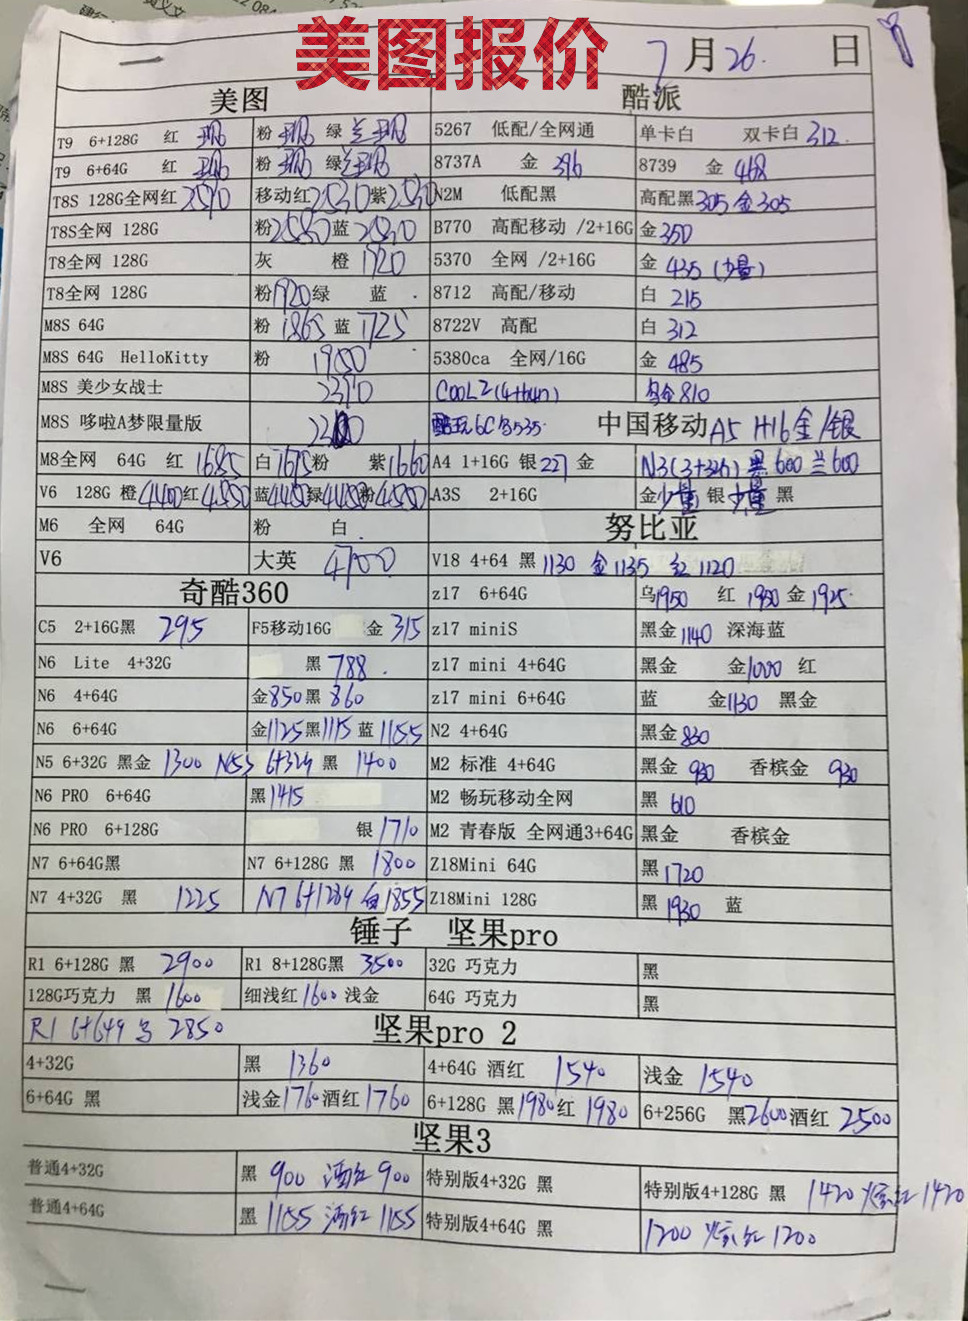 美图报价
7月26.日
美图 酷派
T9 6+128G 红 现 粉 现 绿 兰现 5267 低配/全网通 单卡白 双卡白 312
T9 6+64G 红 现 粉 现 绿 兰现 8737A 金 396 8739 金 468
T8S 128G全网红 移动红 2530 紫 2530 N2M 低配黑 高配黑305 金305
T8S全网 128G 粉2580蓝 B770 高配移动 /2+16G 金350
T8全网 128G 灰 橙 1920 5370 全网 /2+16G 金 435 (少量)
T8全网 128G 粉1920绿 蓝 8712 高配/移动 白 215
M8S 64G 粉 1865 蓝 1725 8722V 高配 白 312
M8S 64G HelloKitty 粉 1900 5380ca 全网/16G 金 485
M8S 美少女战士 COOL2(4+64G) 810
M8S 哆啦A梦限量版 酷玩6C 535 中国移动 A5 H16金/银
M8全网 64G 红 1685 白1675粉 紫1660 A4 1+16G 银227 金 N3(3+32G) 黑 600 兰 600
V6 128G 橙4400红4550 蓝4450绿4450粉4550 A3S 2+16G 金少量 银少量 黑
M6 全网 64G 粉 白 努比亚
V6 大英 4700 V18 4+64 黑 1130 金 1135 红 1120
奇酷360 z17 6+64G 乌1950 红 1950 金 1925
C5 2+16G黑 295 F5移动16G 金 315 z17 miniS 黑金1140 深海蓝
N6 Lite 4+32G 黑 788 z17 mini 4+64G 黑金 金1000 红
N6 4+64G 金850黑 860 z17 mini 6+64G 蓝 金1130 黑金
N6 6+64G 金1125黑1115 蓝 1155 N2 4+64G 黑金830
N5 6+32G 黑金 1300 N5S 6+32G 黑 1400 M2 标准 4+64G 黑金 930 香槟金 930
N6 PRO 6+64G 黑1415 M2 畅玩移动全网 黑 610
N6 PRO 6+128G 银1710 M2 青春版 全网通3+64G 黑金 香槟金
N7 6+64G黑 N7 6+128G 黑 1800 Z18Mini 64G 黑1720
N7 4+32G 黑 1225 N7 6+128G 白1855 Z18Mini 128G 黑 1930 蓝
锤子 坚果pro
R1 6+128G 黑 2900 R1 8+128G黑 3500 32G 巧克力 黑
128G巧克力 黑 1600 细浅红1600 浅金 64G 巧克力 黑
R1 6+64G 乌 2850 坚果pro 2
4+32G 黑 1360 4+64G 酒红 1540 浅金 1540
6+64G 黑 浅金1760酒红1760 6+128G 黑1980红 1980 6+256G 黑2600酒红 2500
坚果3
普通4+32G 黑 900 酒红 900 特别版4+32G 黑 特别版4+128G 黑 1420 红 1420
普通4+64G 黑 1155 酒红 1155 特别版4+64G 黑 1200 红 1200